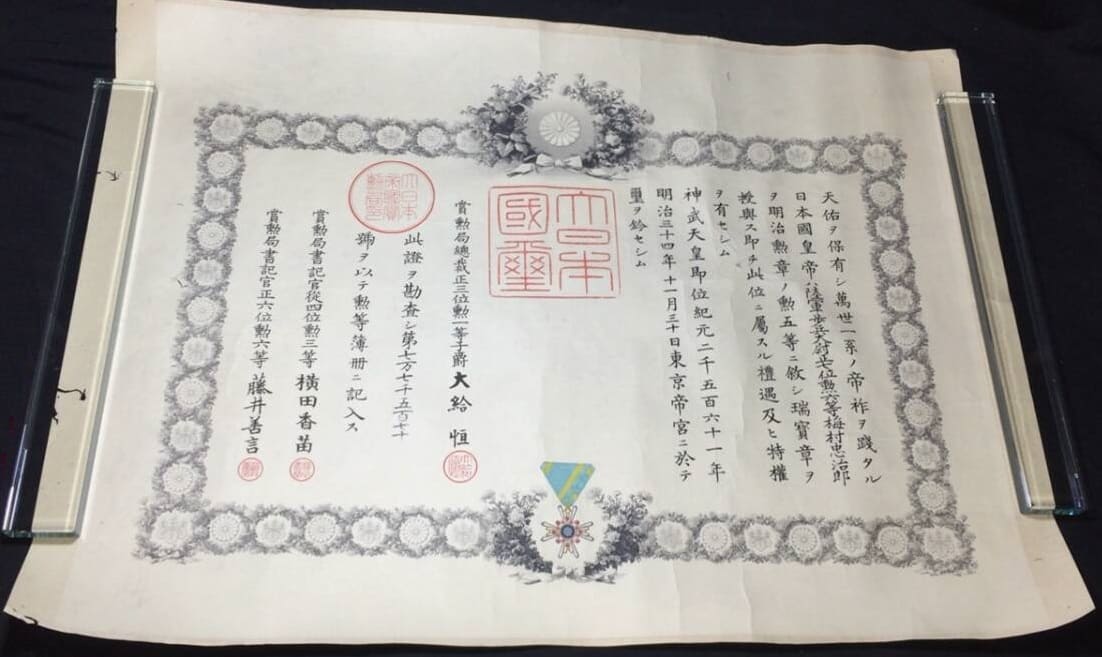 天佑ヲ保有シ萬世一系ノ帝祚ヲ踐タル
日本國皇帝ハ陸軍歩兵大尉正七位勲六等梅村忠治郎
ヲ明治勲章ノ勲五等ニ敘シ瑞寶章ヲ
授與ス即チ此位ニ屬スル禮遇及ヒ特權
ヲ有セシム
神武天皇即位紀元二千五百六十一年
明治三十四年十一月三十日東京帝宮ニ於テ
璽ヲ鈐セシム
大日本
國璽
賞勲局總裁正三位勲一等子爵大給 恒
此證ヲ勘査シ第七万七千五百七十
號ヲ以テ勲等簿冊ニ記入ス
賞勲局書記官從四位勲三等横田香苗
賞勲局書記官正六位勲六等藤井善言